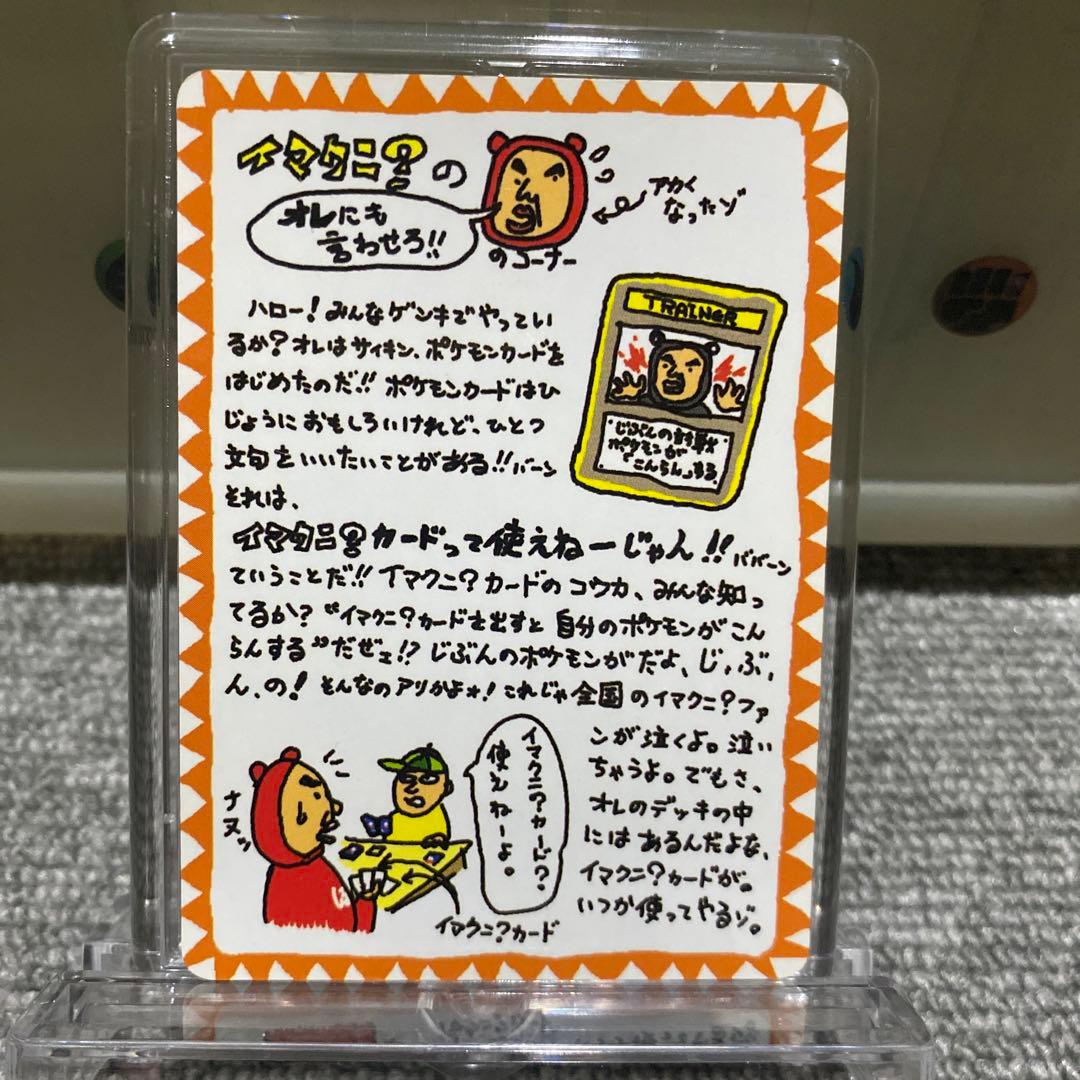 イマクニ?の
オレにも
言わせろ!!
のコーナー
アカく
なったゾ
ハロー!みんなゲンキでやってい
るか?オレはサイキン、ポケモンカードを
はじめたのだ!!ポケモンカードはひ
じょうにおもしろいけれど、ひとつ
文句をいいたいことがある!!バーン
それは、
TRAINER
じぶんの対戦
ポケモンが
「こんらん」する
イマクニ?カードって使えねーじゃん!!ババーン
ていうことだ!!イマクニ?カードのコウカ、みんな知っ
てるか?“イマクニ?カードを出すと自分のポケモンがこん
らんする”だぜェ!?じぶんのポケモンがだよ、じ、ぶ、
ん、の!そんなのアリかよ★!これじゃ全国のイマクニ?ファ
ンが泣くよ。泣い
ちゃうよ。でもさ、
オレのデッキの中
にはあるんだよな、
イマクニ?カードが。
いつか使ってやるゾ。
ナヌッ
イマクニ?カード?
使えねーよ。
イマクニ?カード